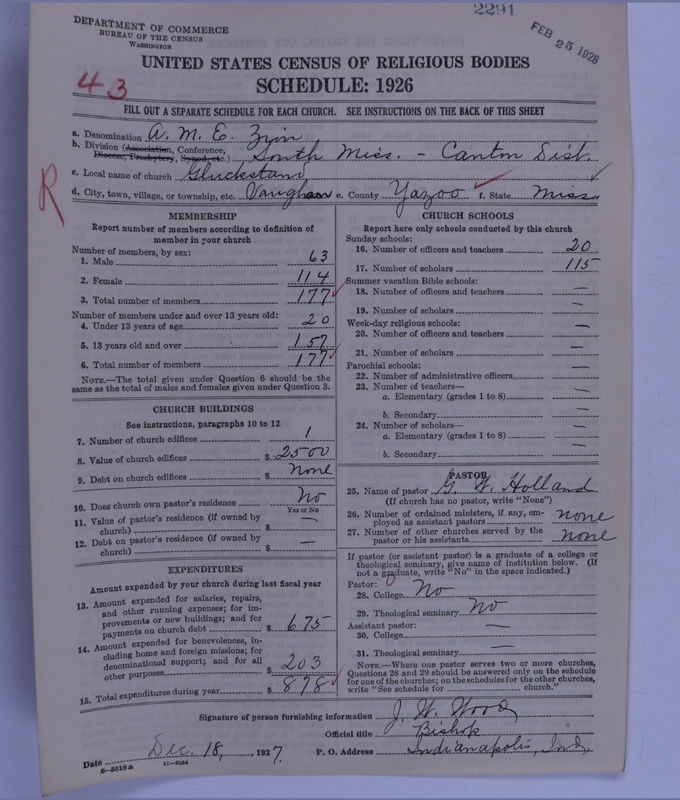 2291
FEB 25 1928
DEPARTMENT OF COMMERCE
BUREAU OF THE CENSUS
WASHINGTON
UNITED STATES CENSUS OF RELIGIOUS BODIES
SCHEDULE: 1926
43
FILL OUT A SEPARATE SCHEDULE FOR EACH CHURCH. SEE INSTRUCTIONS ON THE BACK OF THIS SHEET
a. Denomination A. M. E. Zion
b. Division (Association, Conference, Diocese, Presbytery, Synod, etc.) South Miss. - Canton Dist.
c. Local name of church Gluckstand
R
d. City, town, village, or township, etc. Vaughan e. County Yazoo f. State Miss.
MEMBERSHIP
Report number of members according to definition of
member in your church
Number of members, by sex:
1. Male 63
2. Female 114
3. Total number of members 177
Number of members under and over 13 years old:
4. Under 13 years of age 20
5. 13 years old and over 157
6. Total number of members 177
NOTE.—The total given under Question 6 should be the
same as the total of males and females given under Question 3.
CHURCH BUILDINGS
See instructions, paragraphs 10 to 12
7. Number of church edifices 1
8. Value of church edifices $ 2500
9. Debt on church edifices $ none
10. Does church own pastor's residence No
Yes or No
11. Value of pastor's residence (if owned by
church) $ —
12. Debt on pastor's residence (if owned by
church) $ —
EXPENDITURES
Amount expended by your church during last fiscal year
13. Amount expended for salaries, repairs,
and other running expenses; for im-
provements or new buildings; and for
payments on church debt $ 675
14. Amount expended for benevolences, in-
cluding home and foreign missions; for
denominational support; and for all
other purposes $ 203
15. Total expenditures during year $ 878
CHURCH SCHOOLS
Report here only schools conducted by this church
Sunday schools:
16. Number of officers and teachers 20
17. Number of scholars 115
Summer vacation Bible schools:
18. Number of officers and teachers —
19. Number of scholars —
Week-day religious schools:
20. Number of officers and teachers —
21. Number of scholars —
Parochial schools:
22. Number of administrative officers —
23. Number of teachers—
a. Elementary (grades 1 to 8) —
b. Secondary —
24. Number of scholars—
a. Elementary (grades 1 to 8) —
b. Secondary —
PASTOR
25. Name of pastor G. W. Holland
(If church has no pastor, write "None")
26. Number of ordained ministers, if any, em-
ployed as assistant pastors none
27. Number of other churches served by the
pastor or his assistants none
If pastor (or assistant pastor) is a graduate of a college or
theological seminary, give name of institution below. (If
not a graduate, write "No" in the space indicated.)
Pastor:
28. College No
29. Theological seminary No
Assistant pastor:
30. College —
31. Theological seminary —
NOTE.—Where one pastor serves two or more churches,
Questions 28 and 29 should be answered only on the schedule
for one of the churches; on the schedules for the other churches,
write "See schedule for church."
Signature of person furnishing information J. W. Wood
Official title Bishop
Date Dec. 18, 1927. P. O. Address Indianapolis, Ind.
8-5518a 11-9034